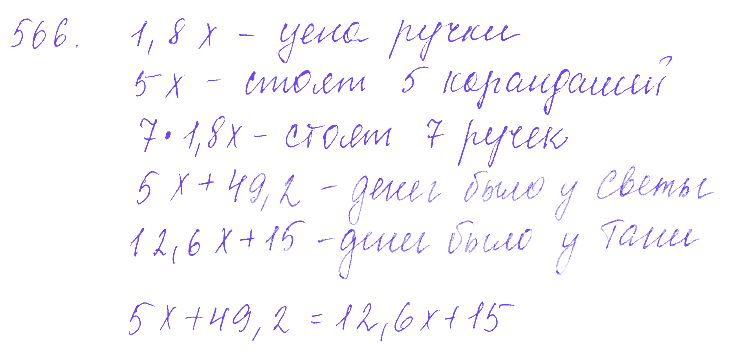 566. 1,8x – цена ручки
5x – стоят 5 карандашей
7·1,8x – стоят 7 ручек
5x+49,2 – денег было у Светы
12,6x+15 – денег было у Тани
5x+49,2=12,6x+15